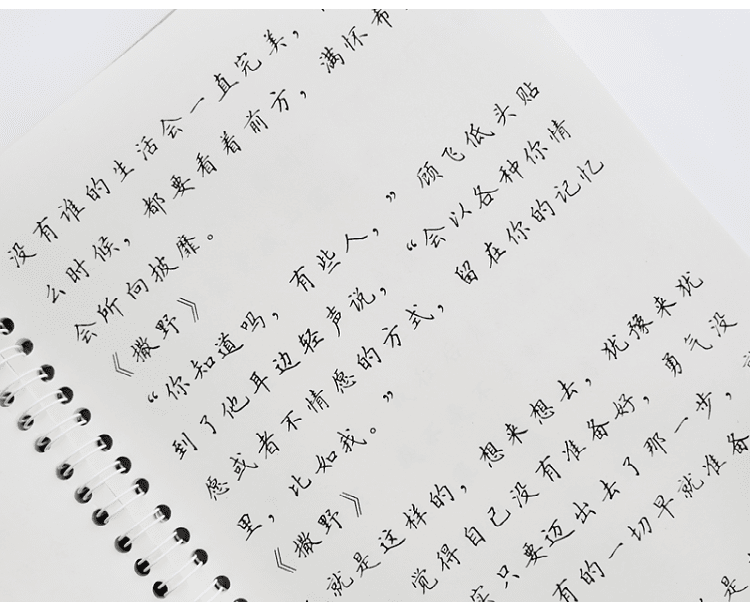 没有谁的生活会一直完美，
么时候，都要看着前方，满怀希
会所向披靡。
《撒野》
“你知道吗，有些人，”顾飞低头贴
到了他耳边轻声说，“会以各种你情
愿或者不情愿的方式，留在你的记忆
里，比如我。”
《撒野》
就是这样的，想来想去，犹豫来犹
觉得自己没有准备好，勇气没
实只要迈出去了那一步，
有的一切早就准备
是